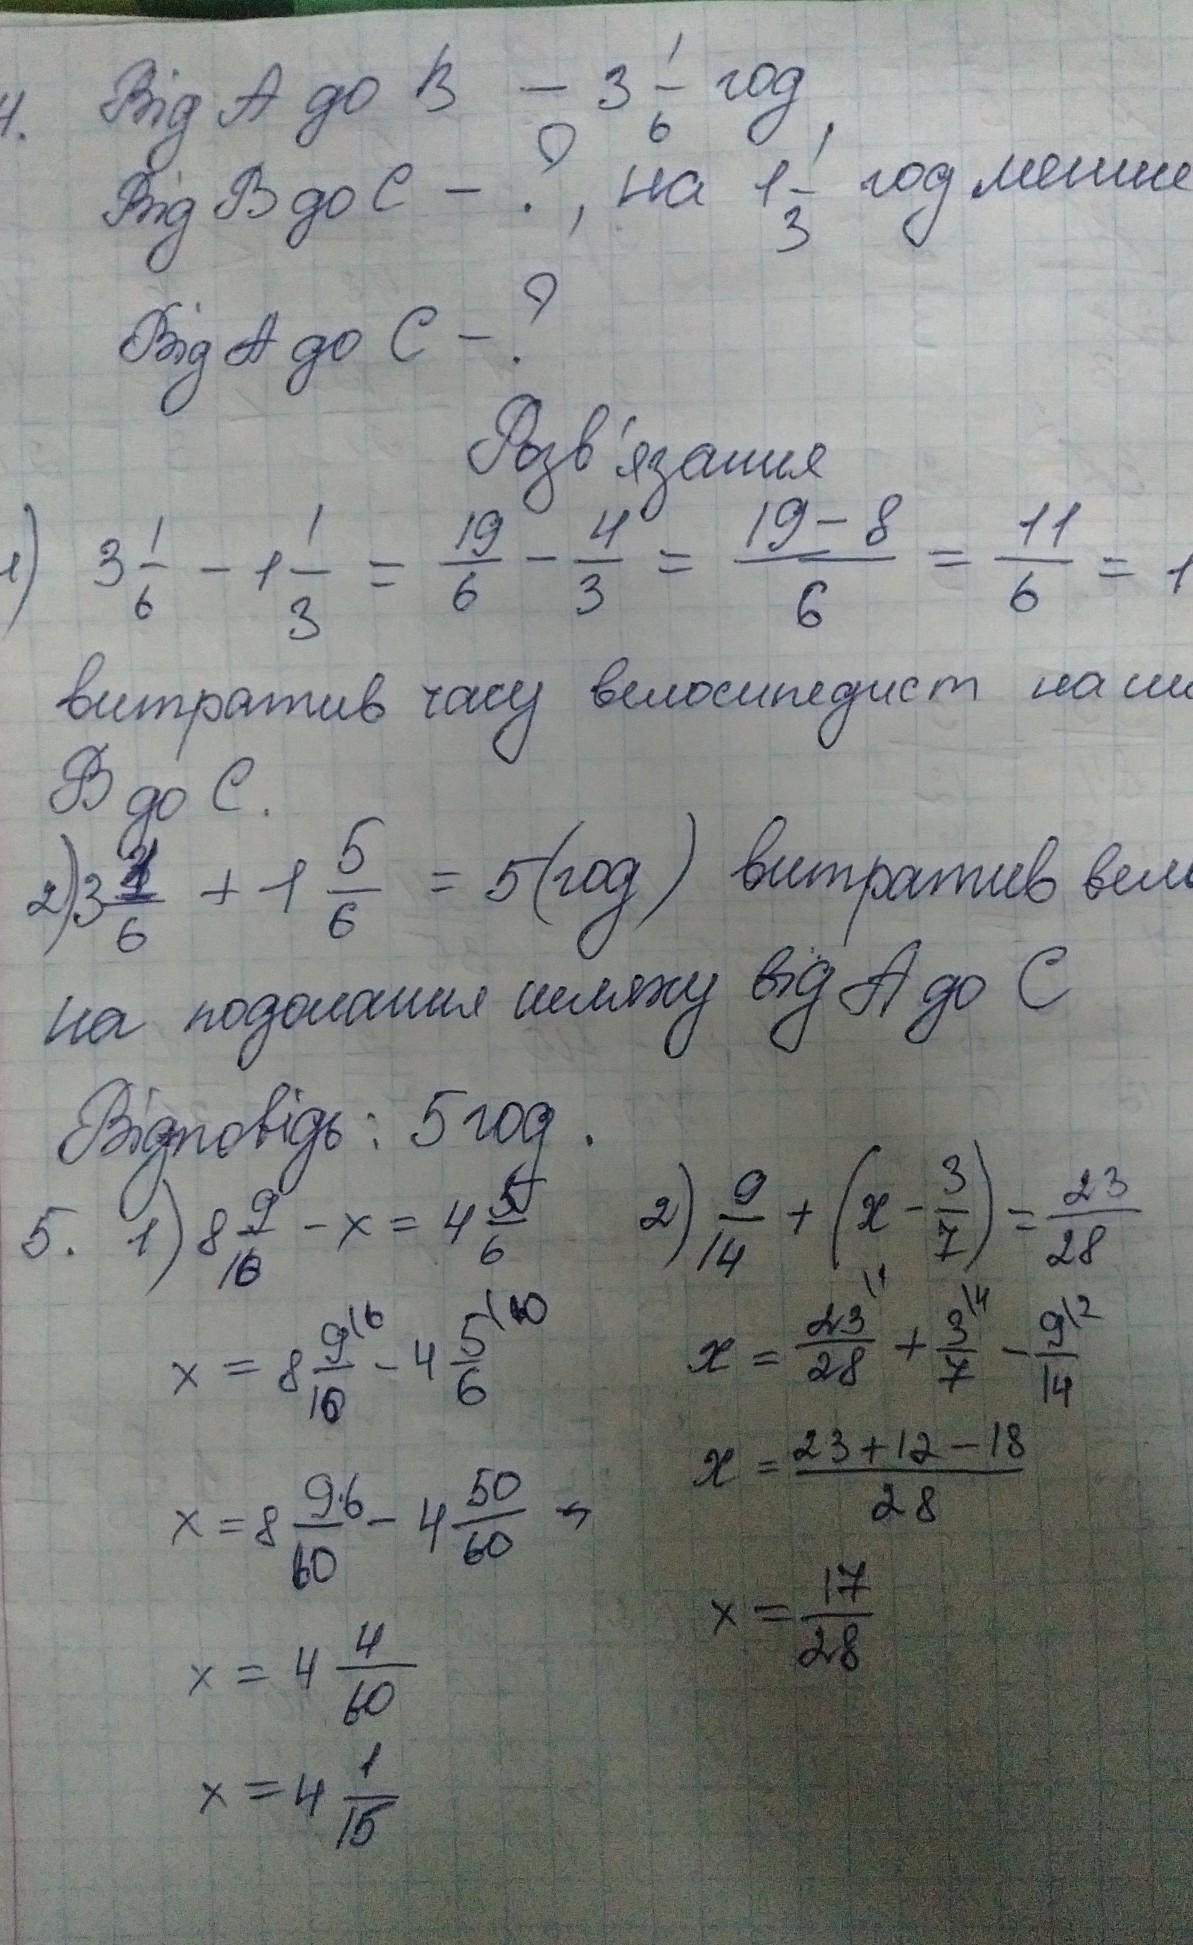 4. Від А до В – 3 1/6 год,
Від В до С – ?, на 1 1/3 год менше
Від А до С – ?
Розв'язання
1) 3 1/6 – 1 1/3 = 19/6 – 4/3 = (19 – 8)/6 = 11/6 = 1
витратив часу велосипедист на
В до С.
2) 3 1/6 + 1 5/6 = 5 (год) витратив вело
на подолання шляху від А до С
Відповідь: 5 год.
5. 1) 8 9/10 – x = 4 5/6
x = 8 9\6/10 – 4 5\10/6
x = 8 9·6/60 – 4 50/60
x = 4 4/60
x = 4 1/15
2) 9/14 + (x – 3/7) = 23/28
x = 23\1/28 + 3\4/7 – 9\2/14
x = (23 + 12 – 18)/28
x = 17/28